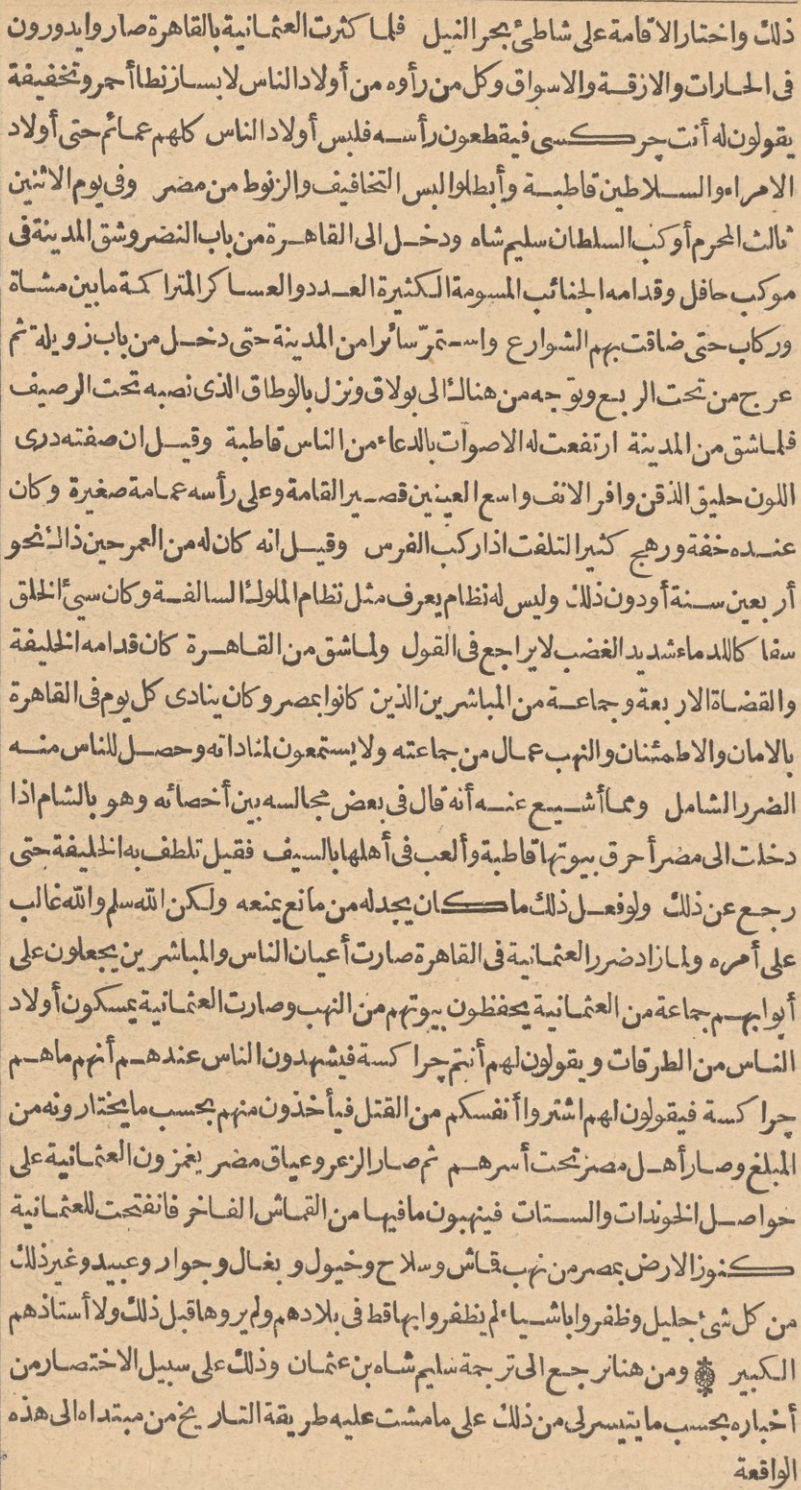 ذلك واختار الاقامة على شاطئ بحر النيل فلما كثرت العثمانية بالقاهرة صاروا يدورون
فى الحارات والازقة والاسواق وكل من رأوه من أولاد الناس لابساز نطا أحمر وتخفيفة
يقولون له أنت چركسى فيقطعون رأسه فلبس أولاد الناس كلهم عمائم حتى أولاد
الامراء والسلاطين قاطبة وأبطلوا لبس التخافيف والزنوط من مصر وفى يوم الاثنين
ثالث المحرم أوكب السلطان سليم شاه ودخل الى القاهرة من باب النصر وشق المدينة فى
موكب حافل وقدامه الجنائب المسومة الكثيرة العدد والعساكر المتراكمة ما بين مشاة
وركاب حتى ضاقت بهم الشوارع واستمرّ سائرا من المدينة حتى دخل من باب زويلة ثم
عرج من تحت الربع وتوجه من هناك الى بولاق ونزل بالوطاق الذى نصبه تحت الرصيف
فلما شق من المدينة ارتفعت له الاصوات بالدعاء من الناس قاطبة وقيل ان صفته درى
اللون حليق الذقن وافر الانف واسع العينين قصير القامة وعلى رأسه عمامة صغيرة وكان
عنده خفة ورهج كثير التلفت اذا ركب الفرس وقيل انه كان له من العمر حين ذاك نحو
أربعين سنة أو دون ذلك وليس له نظام يعرف مثل نظام الملوك السالفة وكان سيئ الخلق
سفا كاللدماء شديد الغضب لا يراجع فى القول ولما شق من القاهرة كان قدامه الخليفة
والقضاة الاربعة وجماعة من المباشرين الذين كانوا بمصر وكان ينادى كل يوم فى القاهرة
بالامان والاطمئنان والنهب عمال من جماعته ولا يستمعون لمناداته وحصل للناس منه
الضرر الشامل ومما أشيع عنه أنه قال فى بعض مجالسه بين أخصائه وهو بالشام اذا
دخلت الى مصر أحرق بيوتها قاطبة وألعب فى أهلها بالسيف فقيل تلطف به الخليفة حتى
رجع عن ذلك ولو فعل ذلك ما كان يجد له من مانع يمنعه ولكن الله سلم والله غالب
على أمره ولما زاد ضرر العثمانية فى القاهرة صارت أعيان الناس والمباشرين يجعلون على
أبوابهم جماعة من العثمانية يحفظون بيوتهم من النهب وصارت العثمانية يمسكون أولاد
الناس من الطرقات ويقولون لهم أنتم چراكسة فيشهدون الناس عندهم أنهم ما هم
چراكسة فيقولون لهم اشتروا أنفسكم من القتل فيأخذون منهم بحسب ما يختارونه من
المبلغ وصار أهل مصر تحت أسرهم ثم صار الزعر وعياق مصر يغمزون العثمانية على
حواصل الخوندات والستات فينهبون ما فيها من القماش الفاخر فانفتحت للعثمانية
كنوز الارض بمصر من نهب قماش وسلاح وخيول وبغال وجوار وعبيد وغير ذلك
من كل شئ جليل وظفروا باشياء لم يظفروا بها قط فى بلادهم ولم يروها قبل ذلك ولا أستاذهم
الكبير ومن هنا نرجع الى ترجمة سليم شاه بن عثمان وذلك على سبيل الاختصار من
أخباره بحسب ما يتيسر لى من ذلك على ما مشت عليه طريقة التاريخ من مبتداه الى هذه
الواقعة